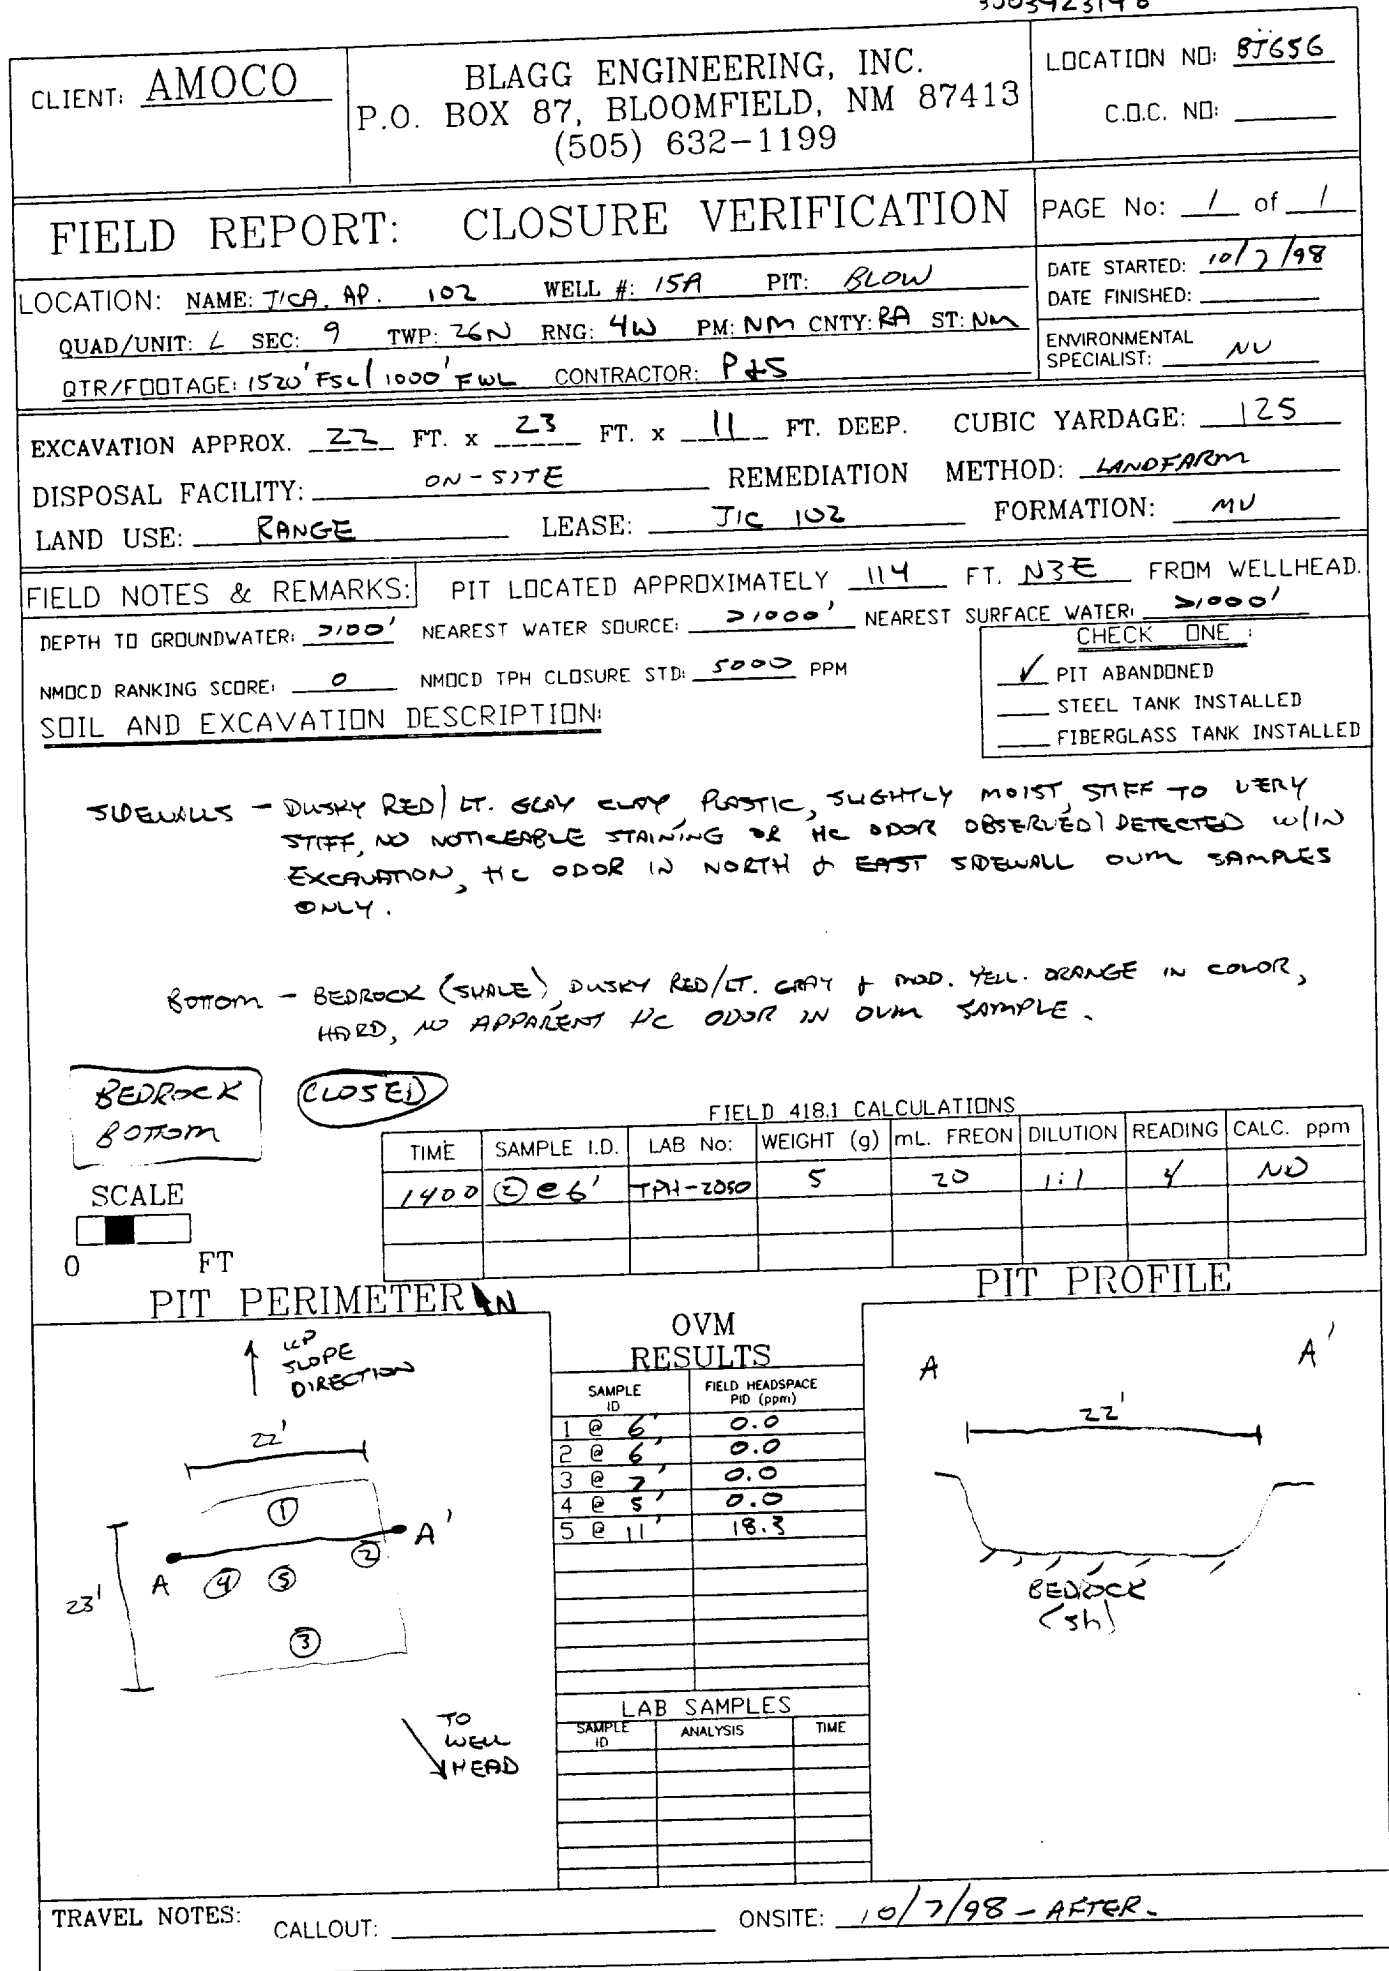 CLIENT: AMOCO
BLAGG ENGINEERING, INC.
P.O. BOX 87, BLOOMFIELD, NM 87413
(505) 632-1199
LOCATION NO: BJ656
C.O.C. NO:
FIELD REPORT: CLOSURE VERIFICATION
PAGE No: 1 of 1
LOCATION: NAME: JICA. AP. 102 WELL #: 15A PIT: BLOW
QUAD/UNIT: L SEC: 9 TWP: 26N RNG: 4W PM: NM CNTY: RA ST: NM
QTR/FOOTAGE: 1520' FSL/1000' FWL CONTRACTOR: P+S
DATE STARTED: 10/7/98
DATE FINISHED:
ENVIRONMENTAL
SPECIALIST: NV
EXCAVATION APPROX. 22 FT. x 23 FT. x 11 FT. DEEP. CUBIC YARDAGE: 125
DISPOSAL FACILITY: ON-SITE REMEDIATION METHOD: LANDFARM
LAND USE: RANGE LEASE: JIC 102 FORMATION: MV
FIELD NOTES & REMARKS: PIT LOCATED APPROXIMATELY 114 FT. N3E FROM WELLHEAD.
DEPTH TO GROUNDWATER: >100' NEAREST WATER SOURCE: >1000' NEAREST SURFACE WATER: >1000'
NMOCD RANKING SCORE: 0 NMOCD TPH CLOSURE STD: 5000 PPM
CHECK ONE :
✓ PIT ABANDONED
STEEL TANK INSTALLED
FIBERGLASS TANK INSTALLED
SOIL AND EXCAVATION DESCRIPTION:
SIDEWALLS - DUSKY RED/LT. GRAY CLAY, PLASTIC, SLIGHTLY MOIST, STIFF TO VERY
STIFF, NO NOTICEABLE STAINING OR HC ODOR OBSERVED/DETECTED W/IN
EXCAVATION, HC ODOR IN NORTH & EAST SIDEWALL OVM SAMPLES
ONLY.
BOTTOM - BEDROCK (SHALE), DUSKY RED/LT. GRAY & MOD. YELL. ORANGE IN COLOR,
HARD, NO APPARENT HC ODOR IN OVM SAMPLE.
BEDROCK
BOTTOM
CLOSED
FIELD 418.1 CALCULATIONS
TIME SAMPLE I.D. LAB No: WEIGHT (g) mL. FREON DILUTION READING CALC. ppm
1400 ② @ 6' TPH-2050 5 20 1:1 4 ND
SCALE
0 FT
PIT PERIMETER N
UP
SLOPE
DIRECTION
22'
①
A'
②
A ④ ⑤
23'
③
TO
WELL
HEAD
OVM
RESULTS
SAMPLE ID FIELD HEADSPACE PID (ppm)
1 @ 6' 0.0
2 @ 6' 0.0
3 @ 7' 0.0
4 @ 5' 0.0
5 @ 11' 18.3
LAB SAMPLES
SAMPLE ID ANALYSIS TIME
PIT PROFILE
A A'
22'
BEDROCK
(sh)
TRAVEL NOTES: CALLOUT: ONSITE: 10/7/98 - AFTER.